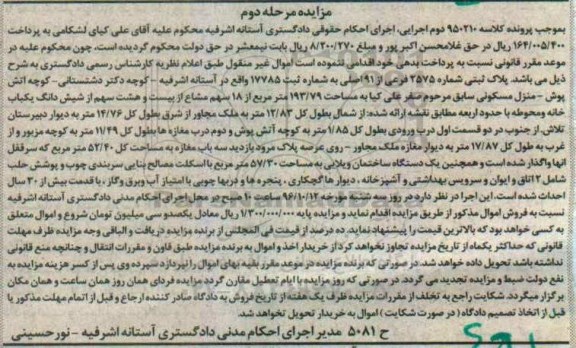 مزایده مرحله دوم
بموجب پرونده کلاسه ۹۵۰۲۱۰ دوم اجرایی، اجرای احکام حقوقی دادگستری آستانه اشرفیه محکوم علیه آقای علی کیای لشکامی به پرداخت
۱۶۴/۰۰۵/۴۰۰ ریال در حق غلامحسن اکبر پور و مبلغ ۸/۲۰۰/۲۷۰ ریال بابت نیمعشر در حق دولت محکوم گردیده است، چون محکوم علیه در
موعد مقرر قانونی نسبت به پرداخت بدهی خود اقدامی ننموده است اموال غیر منقول طبق اعلام نظریه کارشناس رسمی دادگستری به شرح
ذیل می باشد. پلاک ثبتی شماره ۲۵۷۵ فرعی از ۹۱ اصلی به شماره ثبت ۱۷۷۸۵ واقع در آستانه اشرفیه - کوچه دکتر دشتستانی- کوچه آتش
پوش - منزل مسکونی سابق مرحوم صفر علی کیا به مساحت ۱۹۳/۷۹ متر مربع از ۱۸ سهم مشاع از بیست و هشت سهم از شش دانگ یکباب
خانه ومحوطه با حدود اربعه مطابق نقشه ارائه شده: از شمال بطول کل ۱۲/۸۳ متر به ملک مجاور از شرق بطول کل ۱۴/۷۶ متر به دیوار دبیرستان
تلاش، از جنوب در دو قسمت اول درب ورودی بطول کل ۱/۸۵ متر به کوچه آتش پوش و دوم درب مغازه ها بطول کل ۱۱/۴۹ متر به کوچه مزبور و از
غرب به طول کل ۱۷/۸۷ متر به دیوار مغازه ملک مجاور - روی عرصه پلاک مرود بازدید سه باب مغازه به مساحت کل ۵۲/۴۰ متر مربع که سرقفل
انها واگذار شده است و همچنین یک دستگاه ساختمان ویلایی به مساحت ۵۷/۳۰ متر مربع با اسکلت مصالح بنایی سربندی چوب و پوشش حلب
شامل ۲ اتاق و ایوان و سرویس بهداشتی و آشپزخانه ، دیوار ها گچکاری ، پنجره ها و دربها چوبی با امتیاز آب وبرق وگاز ، با قدمت بیش از ۳۰ سال
احداث شده است. این اجرا در نظر دارد در روز سه شنبه مورخه ۹۶/۱۰/۱۲ صبح در محل اجرای احکام مدنی دادگستری آستانه اشرفیه
نسبت به فروش اموال مذکور از طریق مزایده اقدام نماید و مزایده پایه ۱/۳۰۰/۰۰۰/۰۰۰ ریال معادل یکصدو سی میلیون تومان شروع و اموال متعلق
به کسی خواهد بود که بالاترین قیمت را پیشنهاد نماید. ده درصد از قیمت فی المجلس از برنده مزایده دریافت و الباقی وجه مزایده ظرف مهلت
قانونی که حداکثر یکماه از تاریخ مزایده تجاوز نخواهد کرد از خریدار اخذ و اموال به برنده مزایده طبق قاون و مقررات انتقال و چنانچه منع قانونی
نداشته باشد تحویل داده خواهد شد. در صورتی که برنده مزایده در موعد مقرر بقیه بهای اموال را نپردازد سپرده وی پس از کسر هزینه مزایده به
نفع دولت ضبط و مزایده تجدید می گردد. در صورتی که روز مزایده با ایام تعطیل مقارن گردد مزایده فردای همان روز همان ساعت و همان مکان
برگزار میگردد. شکایت راجع به تخلف از مقررات مزایده ظرف یک هفته از تاریخ فروش به دادگاه صادر کننده ارجاع و قبل از اتمام مهلت مذکور یا
قبل از اتخاذ تصمیم دادگاه ( در صورت شکایت ) اموال به خریدار تحویل نخواهد شد.
ح ۵۰۸۱ مدیر اجرای احکام مدنی دادگستری آستانه اشرفیه - نور حسینی